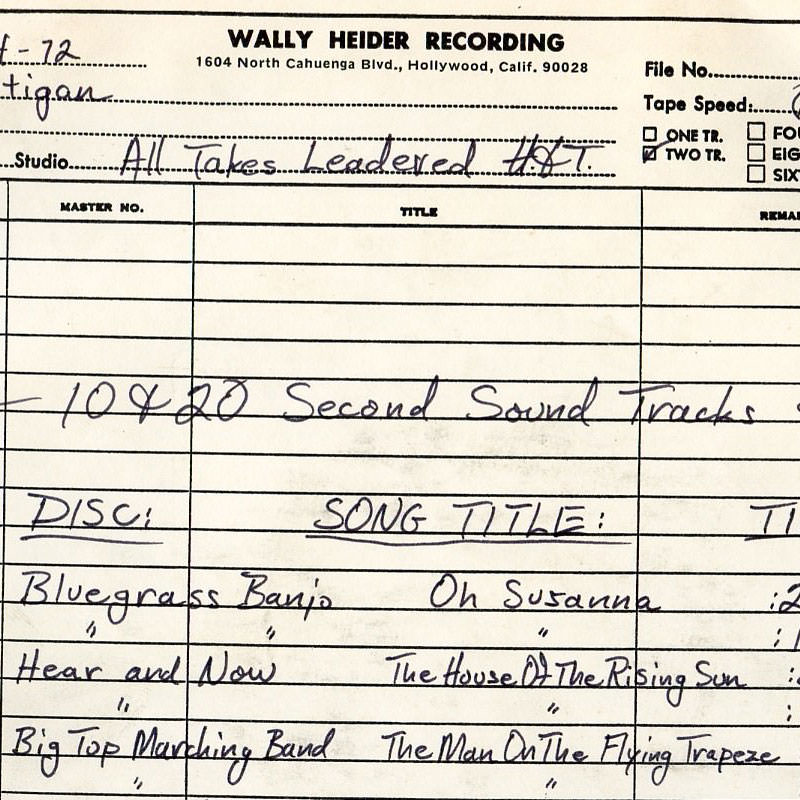 -72
WALLY HEIDER RECORDING
1604 North Cahuenga Blvd., Hollywood, Calif. 90028
File No.
tigan
Tape Speed:
ONE TR. FOU
Studio All Takes Leadered H&T. TWO TR. EIG
SIXT
MASTER NO. TITLE REMA
— 10 & 20 Second Sound Tracks
DISC: SONG TITLE: TI
Bluegrass Banjo Oh Susanna :2
" " " :1
Hear and Now The House Of The Rising Sun :
" " :
Big Top Marching Band The Man On The Flying Trapeze
" "